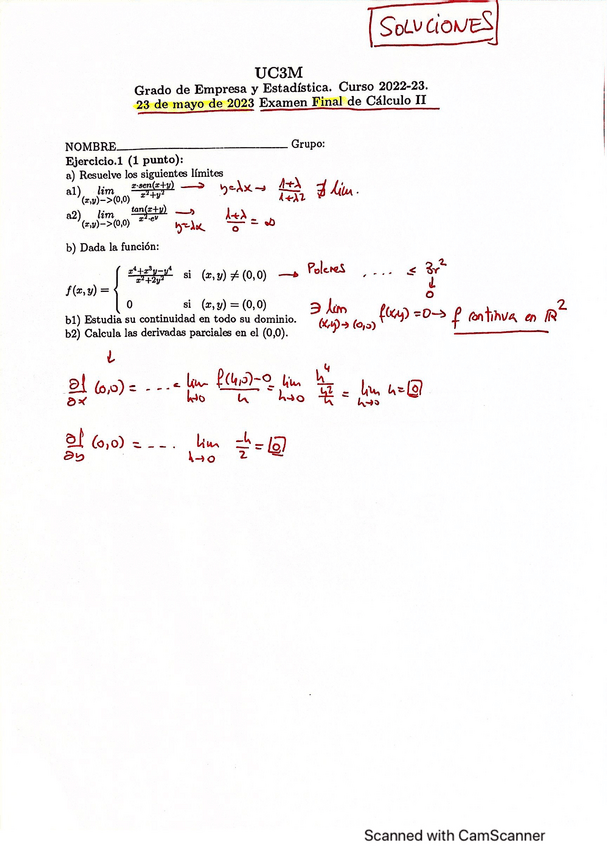 SOLUCIONES
UC3M
Grado de Empresa y Estadística. Curso 2022-23.
23 de mayo de 2023 Examen Final de Cálculo II
NOMBRE__________________________ Grupo:
Ejercicio.1 (1 punto):
a) Resuelve los siguientes límites
a1) lim (x,y)−>(0,0) x·sen(x+y)/x²+y² → y=λx → 1+λ/1+λ² ∄ lim.
a2) lim (x,y)−>(0,0) tan(x+y)/x²·eʸ → y=λx 1+λ/0 = ∞
b) Dada la función:
f(x, y) = { x⁴+x³y−y⁴/x²+2y² si (x, y) ≠ (0, 0) → Polares .... ≤ 3r² ↓ 0
0 si (x, y) = (0, 0) ∃ lim (x,y)→(0,0) f(x,y) = 0 → f continua en ℝ²
b1) Estudia su continuidad en todo su dominio.
b2) Calcula las derivadas parciales en el (0,0).
↓
∂f/∂x (0,0) = .... = lim h→0 f(h,0)−0/h = lim h→0 h⁴/h²/h = lim h→0 h = 0
∂f/∂y (0,0) = .... lim h→0 −h/2 = 0
Scanned with CamScanner